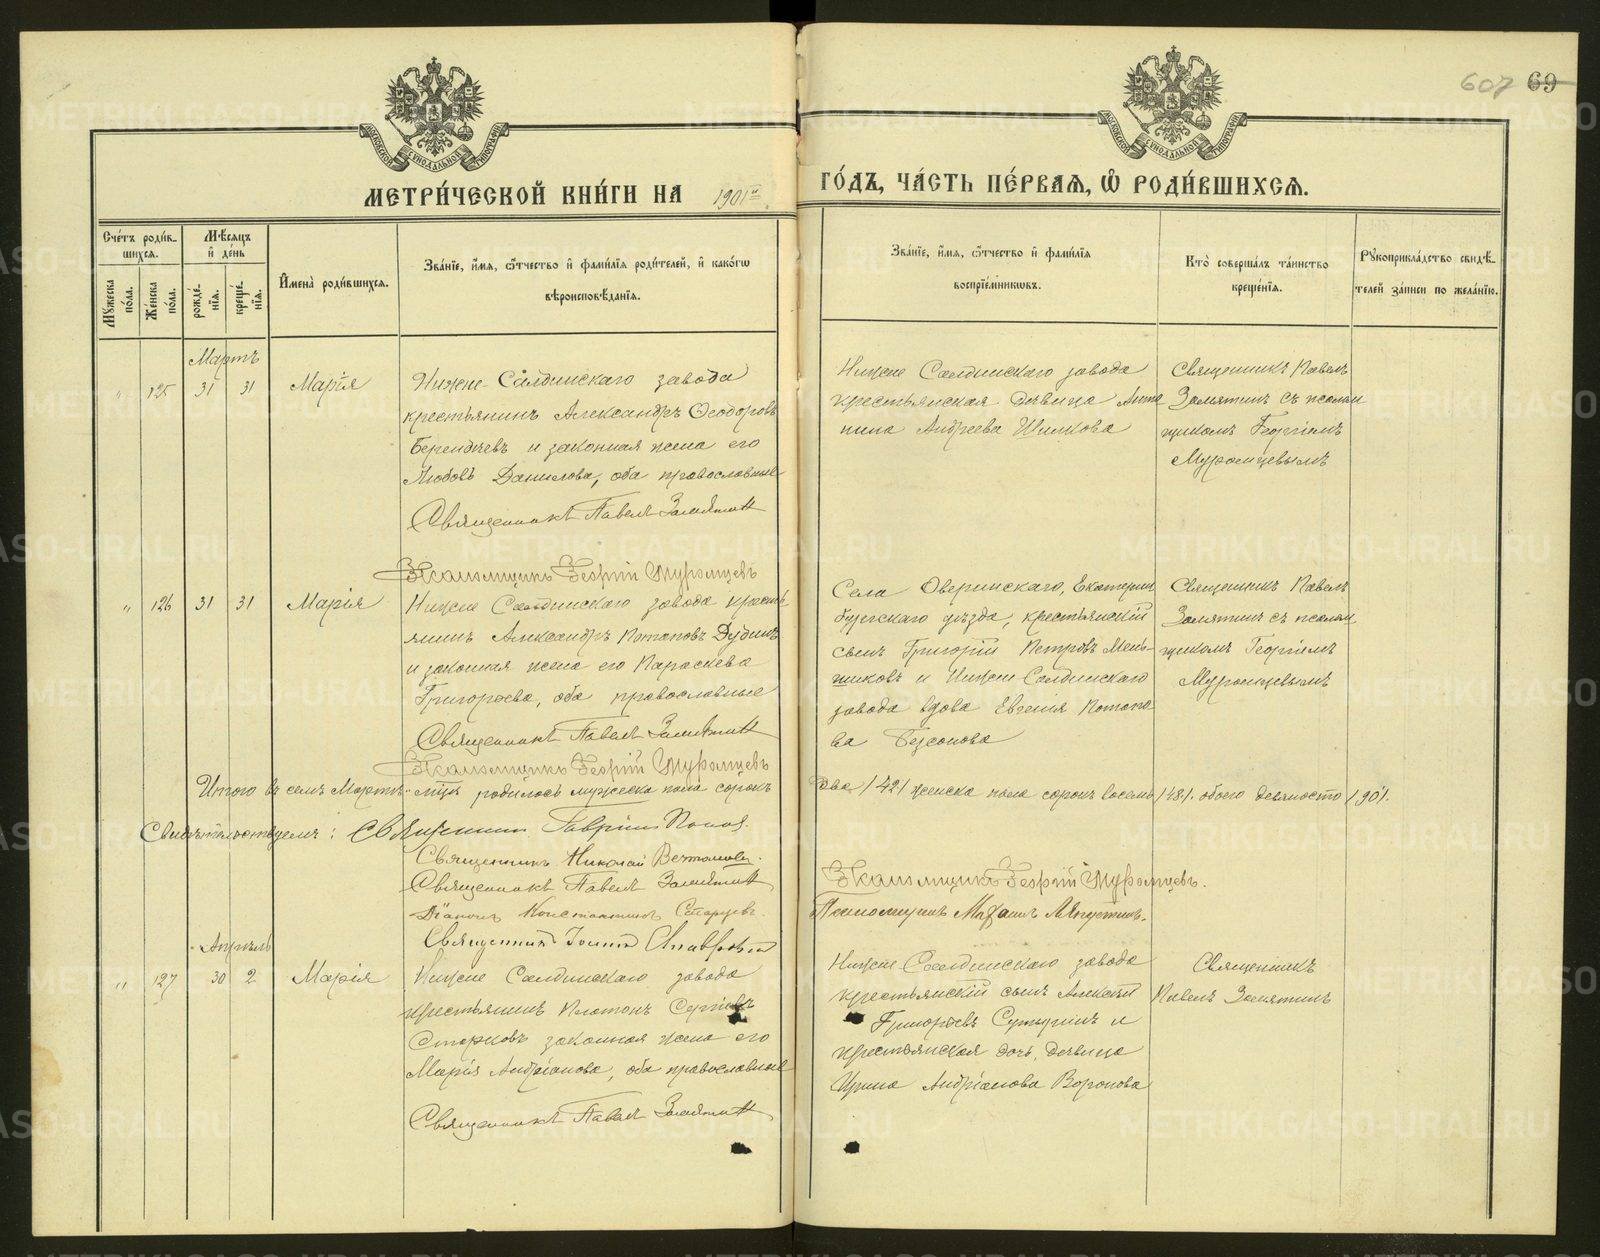 607 69
МОСКОВСКОЙ СѴНОДАЛЬНОЙ ТИПОГРАФІИ
МОСКОВСКОЙ СѴНОДАЛЬНОЙ ТИПОГРАФІИ
МЕТРИ́ЧЕСКОЙ КНИ́ГИ НА 1901й ГО́ДЪ, ЧА́СТЬ ПЕ́РВАѦ, Ѡ҆ РОДИ́ВШИХСѦ.
Сче́тъ роди́вшихсѧ.
Мꙋ́жеска по́ла.
Же́нска по́ла.
Мѣ́сѧцъ и҆ де́нь
рожде́нїѧ.
креще́нїѧ.
И҆мена̀ роди́вшихсѧ.
Зва́нїе, и҆́мѧ, ѻ҆́тчество и҆ фами́лїѧ роди́телей, и҆ како́гѡ вѣроисповѣ́данїѧ.
Зва́нїе, и҆́мѧ, ѻ҆́тчество и҆ фами́лїѧ воспрїе́мникѡвъ.
Кто̀ соверша́лъ та́инство креще́нїѧ.
Рꙋкоприкла́дство свидѣ́телей за́писи по жела́нїю.
Мартъ
„ 125 31 31 Марія
Нижне-Салдинскаго завода
крестьянинъ Александръ Ѳеодоровъ
Берендѣевъ и законная жена его
Любовь Данилова, оба православные
Священникъ Павелъ Замятин
Псаломщикъ Георгій Муромцевъ
Нижне Салдинскаго завода
крестьянская дѣвица Анто
нина Андреева Шилкова
Священникъ Павелъ
Замятинъ съ псалом
щикомъ Георгіемъ
Муромцевымъ
„ 126 31 31 Марія
Нижне Салдинскаго завода кресть-
янинъ Александръ Потаповъ Дудинъ
и законная жена его Параскева
Григорьева, оба православные
Священникъ Павелъ Замятин
Псаломщикъ Георгій Муромцевъ
Села Оверинскаго, Екатерин
бургскаго уѣзда, крестьянскій
сынъ Григорій Петровъ Мень-
шиковъ и Нижне-Салдинскаго
завода вдова Евгенія Потапо-
ва Безсонова
Священникъ Павелъ
Замятинъ съ псалом
щикомъ Георгіемъ
Муромцевымъ
Итого въ семъ Мартѣ м-цѣ родилось мужеска пола сорокъ два /42/ женска пола сорокъ восемь /48/. обоего девяносто /90/.
Свидѣтельствуемъ: Священник Гавріил Попов.
Священникъ Николай
Священникъ Павелъ Замятин
Діаконъ Константинъ Старцевъ.
Священник Іоанн
Псаломщикъ Георгій Муромцевъ.
Псаломщикъ Михаилъ
Апрѣль
„ 127 30 2 Марія
Нижне Салдинскаго завода
крестьянинъ Платонъ Сергѣевъ
Старковъ законная жена его
Марія Андріанова, оба православные
Священникъ Павелъ Замятин
Нижне Салдинскаго завода
крестьянскій сынъ Алексѣй
Григорьевъ и
крестьянская дочь, дѣвица
Ирина Андріанова Воронова
Священникъ
Павелъ Замятинъ
METRIKI.GASO-URAL.RU